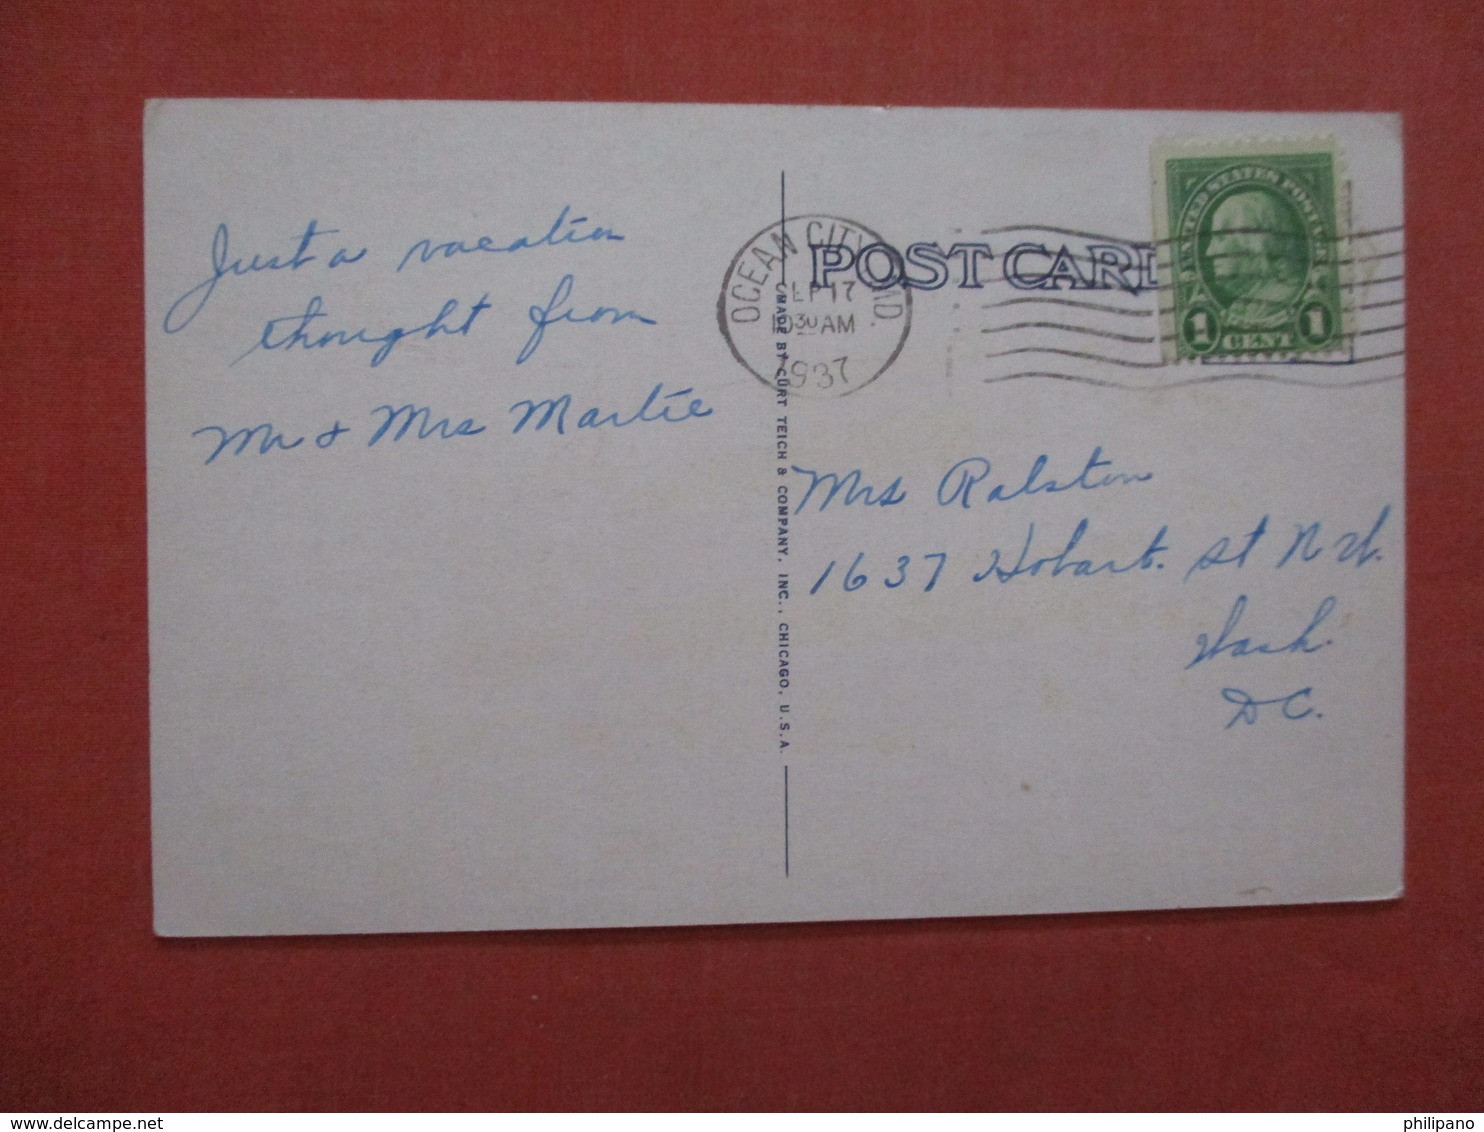 Just a vacation
thought from
Mr & Mrs Martie
POST CARD
OCEAN CITY MD
SEP 17
10 30 AM
1937
UNITED STATES POSTAGE
1 CENT 1
MADE BY CURT TEICH & COMPANY, INC., CHICAGO, U.S.A.
Mrs Ralston
1637 Hobart. St N.W.
Wash.
D C.
http://www.delcampe.net
philipano